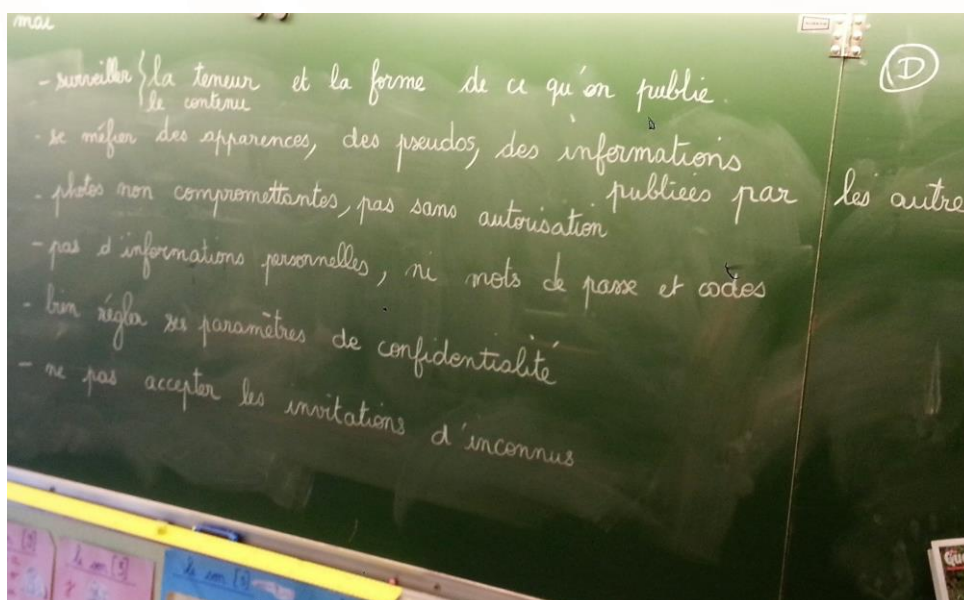 mai
D
- surveiller { la teneur et la forme de ce qu'on publie.
le contenu
- se méfier des apparences, des pseudos, des informations
publiées par les autre
- photos non compromettantes, pas sans autorisation
- pas d'informations personnelles, ni mots de passe et codes
- bien régler ses paramètres de confidentialité
- ne pas accepter les invitations d'inconnus
le son
le son